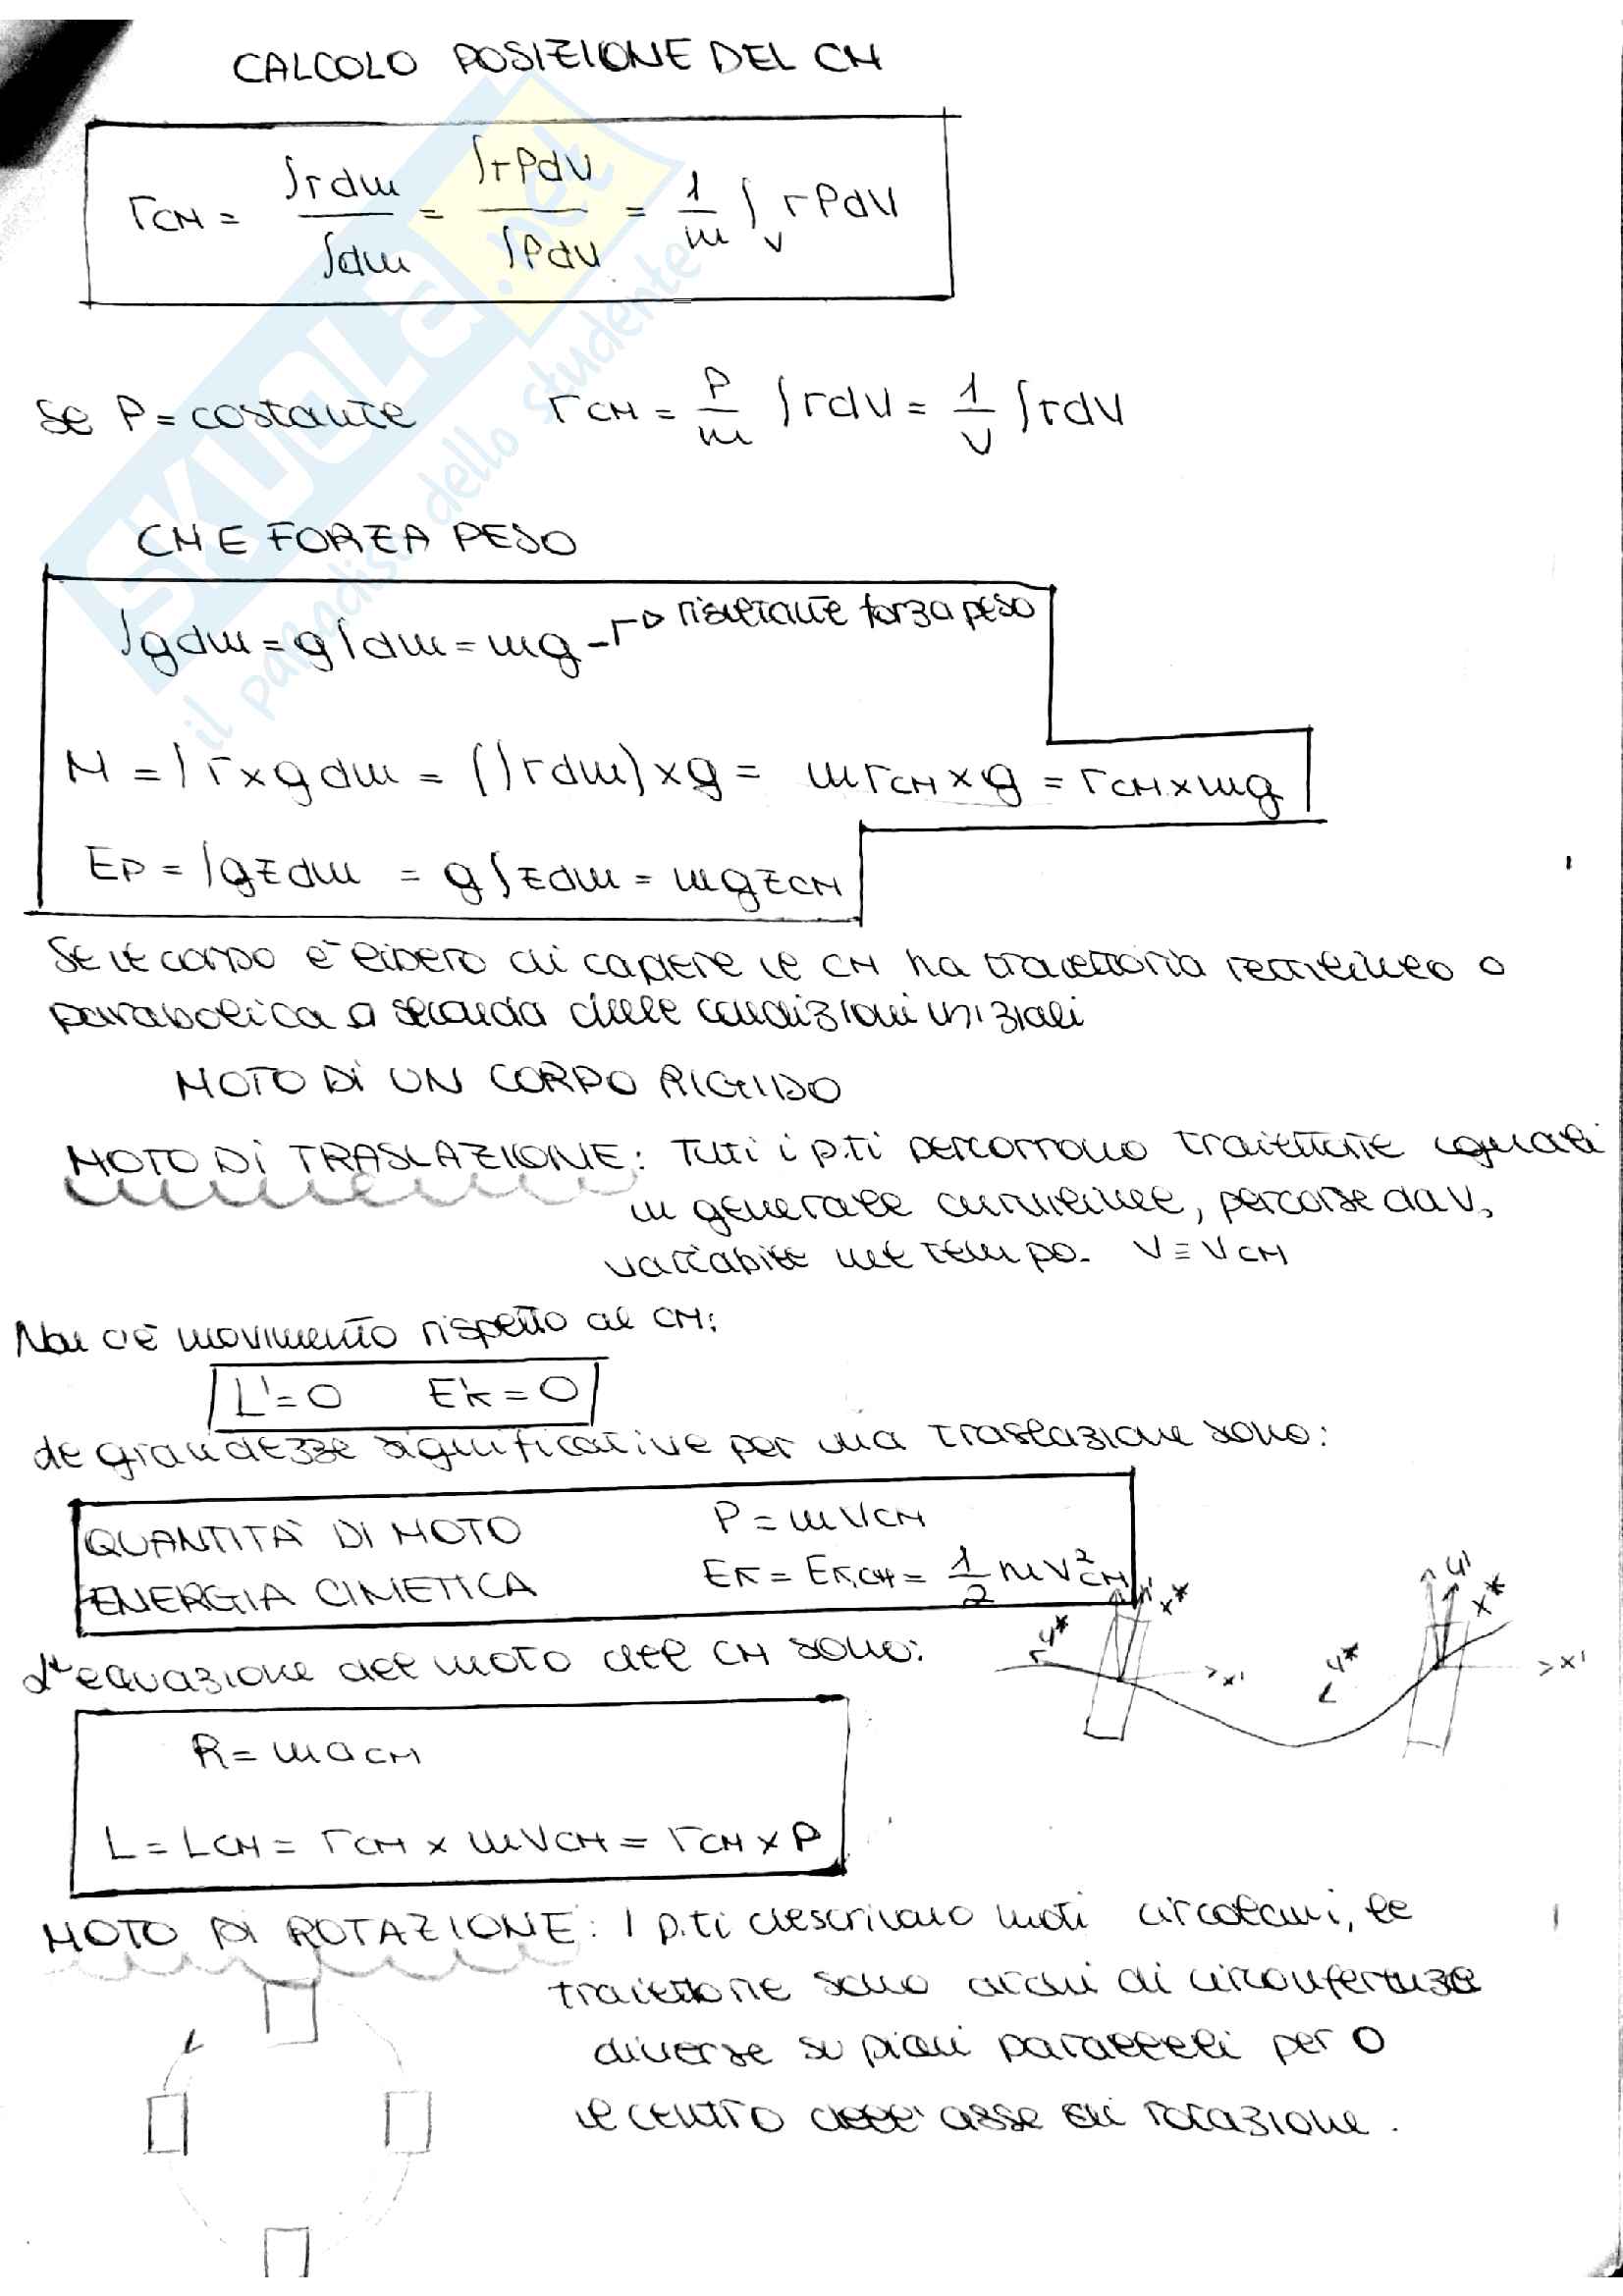 CALCOLO POSIZIONE DEL CM
rCM = ∫rdm / ∫dm = ∫rρdV / ∫ρdV = 1/m ∫V rρdV
Se ρ = costante rCM = ρ/m ∫rdV = 1/V ∫rdV
CM E FORZA PESO
∫gdm = g∫dm = mg → risultante forza peso
M = ∫r×gdm = (∫rdm)×g = mrCM×g = rCM×mg
EP = ∫gzdm = g∫zdm = mgzCM
Se il corpo è libero di cadere il CM ha traiettoria rettilineo o
parabolica a seconda delle condizioni iniziali
MOTO DI UN CORPO RIGIDO
MOTO DI TRASLAZIONE: Tutti i p.ti percorrono traiettorie uguali
in generale curvilinee, percorse da v,
variabile nel tempo. V ≡ VCM
Non c'è movimento rispetto al CM:
L'=0 E'k=0
Le grandezze significative per una traslazione sono:
QUANTITÀ DI MOTO P = mVCM
ENERGIA CINETICA EK = EK,CM = 1/2 mV²CM
L'equazione del moto del CM sono:
y* x* x' y* y' x* x'
R = maCM
L = LCM = rCM × mVCM = rCM × P
MOTO DI ROTAZIONE: I p.ti descrivono moti circolari, le
traiettorie sono archi di circonferenza
diverse su piani paralleli per O
il centro dell'asse di rotazione.
SKUOLA.net
il paradiso dello studente